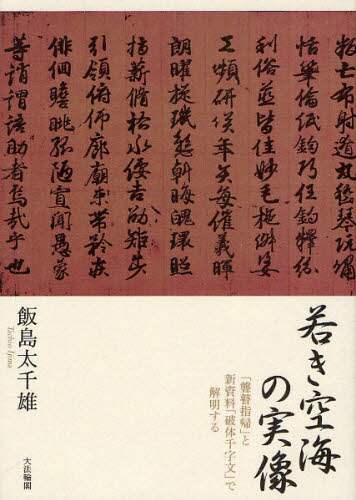 叛亡布射遼丸嵇琴阮嘯
恬筆倫紙鈞巧任釣釋紛
利俗並皆佳妙毛施淑姿
工嚬研咲年矢每催羲暉
朗曜琁璣懸斡晦魄環照
指薪脩祜永綏吉劭矩步
引領俯仰廊廟束帶矜莊
俳佪瞻眺孤陋寡聞愚蒙
等誚謂語助者焉哉乎也
若き空海
の実像
「聾瞽指帰」と
新資料「破体千字文」で
解明する
飯島太千雄
Tachio Iijima
大法輪閣